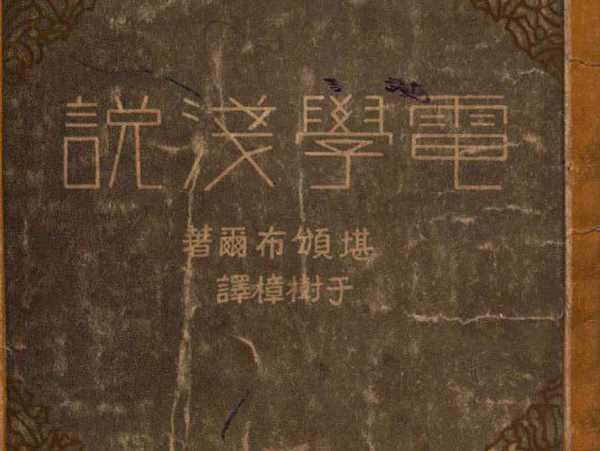 電學淺說
堪頌布爾著
于樹樟譯